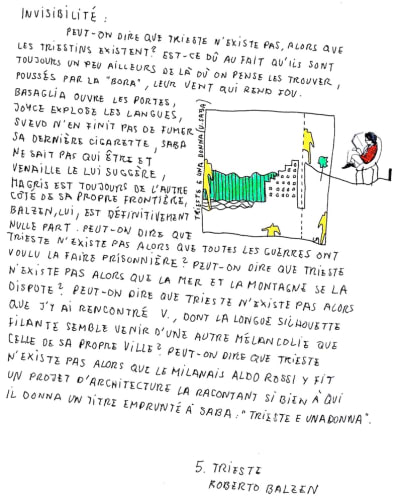 INVISIBILITÉ :
PEUT-ON DIRE QUE TRIESTE N'EXISTE PAS, ALORS QUE
LES TRIESTINS EXISTENT? EST-CE DÛ AU FAIT QU'ILS SONT
TOUJOURS UN PEU AILLEURS DE LÀ OÙ ON PENSE LES TROUVER,
POUSSÉS PAR LA "BORA", LEUR VENT QUI REND FOU.
BASAGLIA OUVRE LES PORTES,
JOYCE EXPLOSE LES LANGUES,
SVEVO N'EN FINIT PAS DE FUMER
SA DERNIÈRE CIGARETTE, SABA
NE SAIT PAS QUI ÊTRE ET
VENAILLE LE LUI SUGGÈRE,
MAGRIS EST TOUJOURS DE L'AUTRE
CÔTÉ DE SA PROPRE FRONTIÈRE,
BALZEN, LUI, EST DÉFINITIVEMENT
NULLE PART. PEUT-ON DIRE QUE
TRIESTE N'EXISTE PAS ALORS QUE TOUTES LES GUERRES ONT
VOULU LA FAIRE PRISONNIÈRE? PEUT-ON DIRE QUE TRIESTE
N'EXISTE PAS ALORS QUE LA MER ET LA MONTAGNE SE LA
DISPUTE? PEUT-ON DIRE QUE TRIESTE N'EXISTE PAS ALORS
QUE J'Y AI RENCONTRÉ V., DONT LA LONGUE SILHOUETTE
FILANTE SEMBLE VENIR D'UNE AUTRE MÉLANCOLIE QUE
CELLE DE SA PROPRE VILLE? PEUT-ON DIRE QUE TRIESTE
N'EXISTE PAS ALORS QUE LE MILANAIS ALDO ROSSI Y FIT
UN PROJET D'ARCHITECTURE LA RACONTANT SI BIEN À QUI
IL DONNA UN TITRE EMPRUNTÉ À SABA : "TRIESTE E UNA DONNA".
TRIESTE E UNA DONNA (U. SABA)
5. TRIESTE
ROBERTO BALZEN